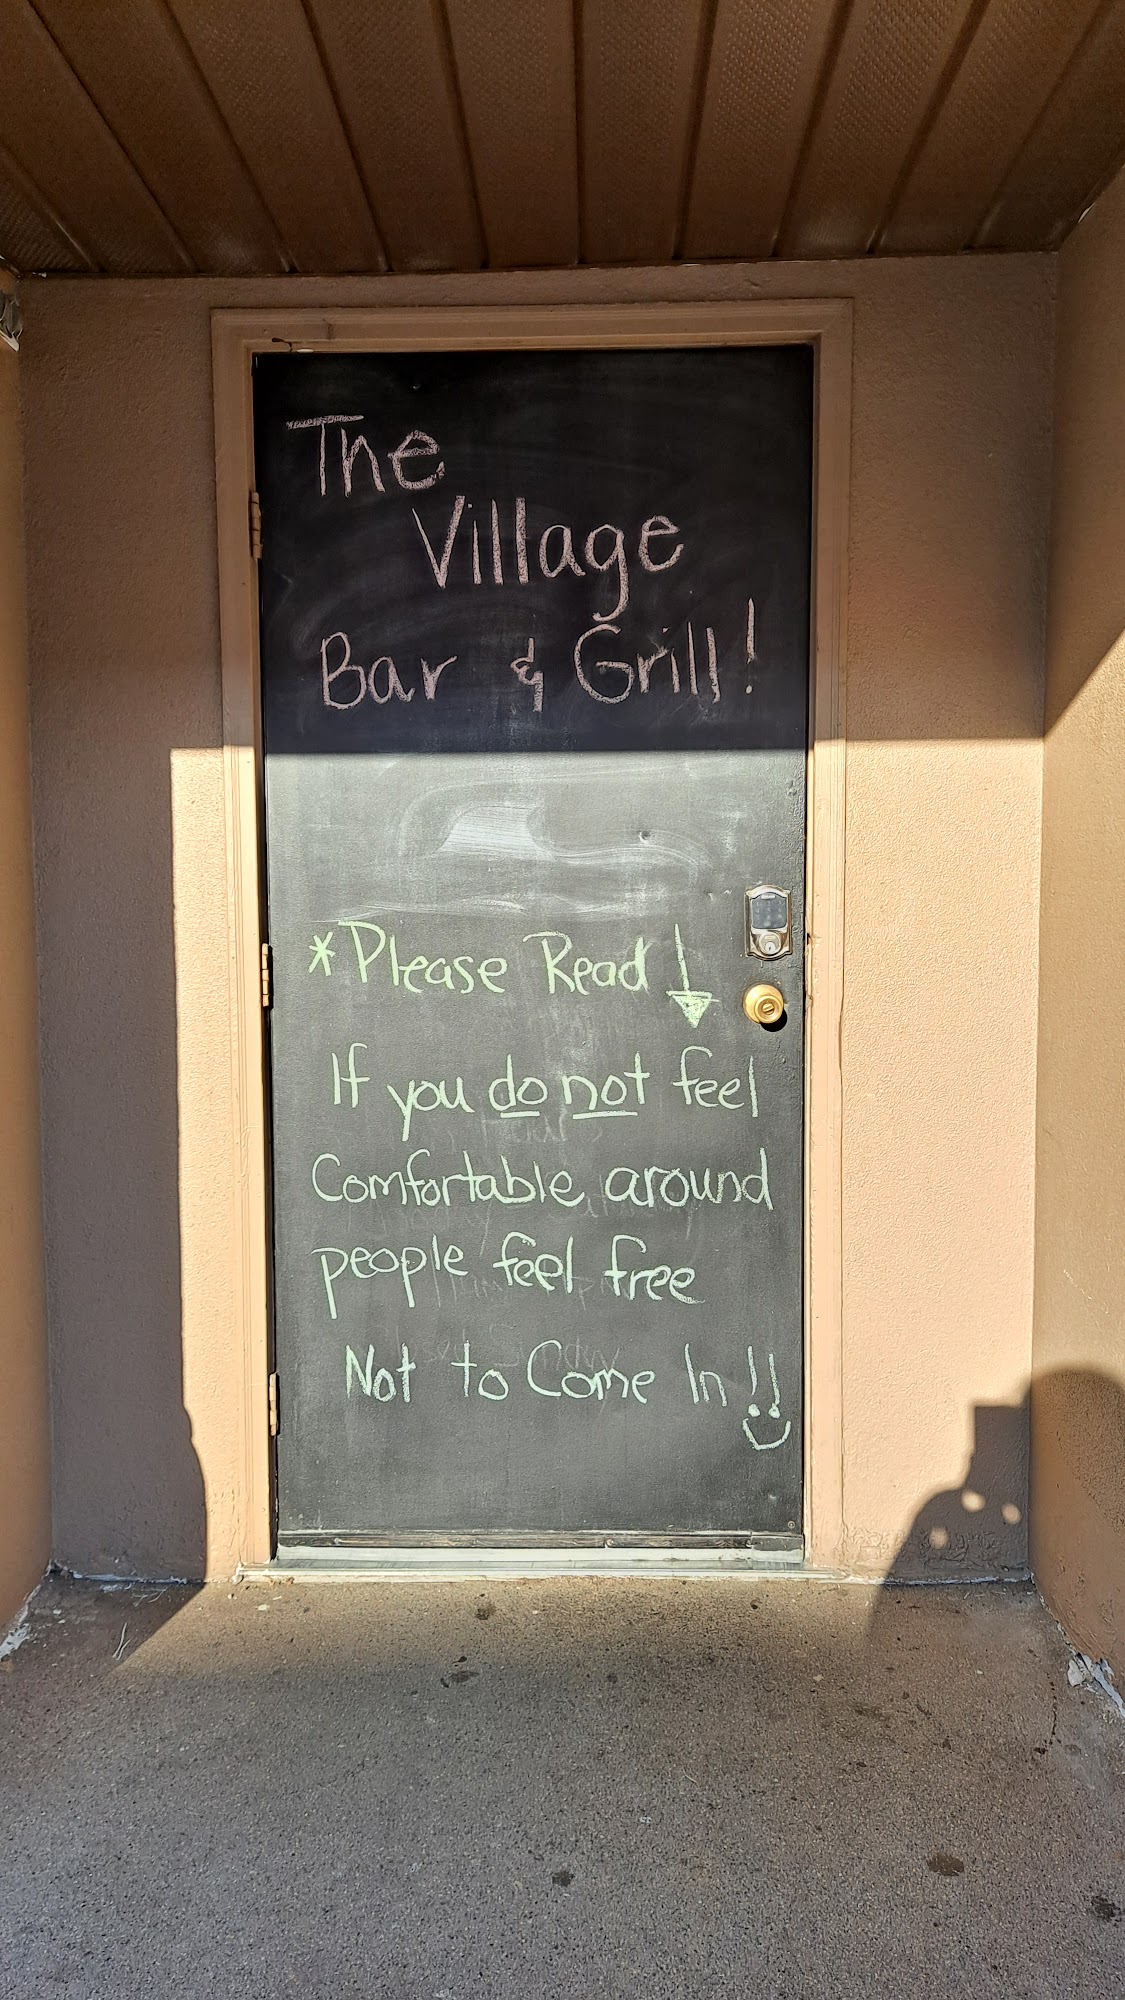 The
Village
Bar & Grill!
*Please Read ↓
If you do not feel
Comfortable around
people feel free
Not to Come In !!